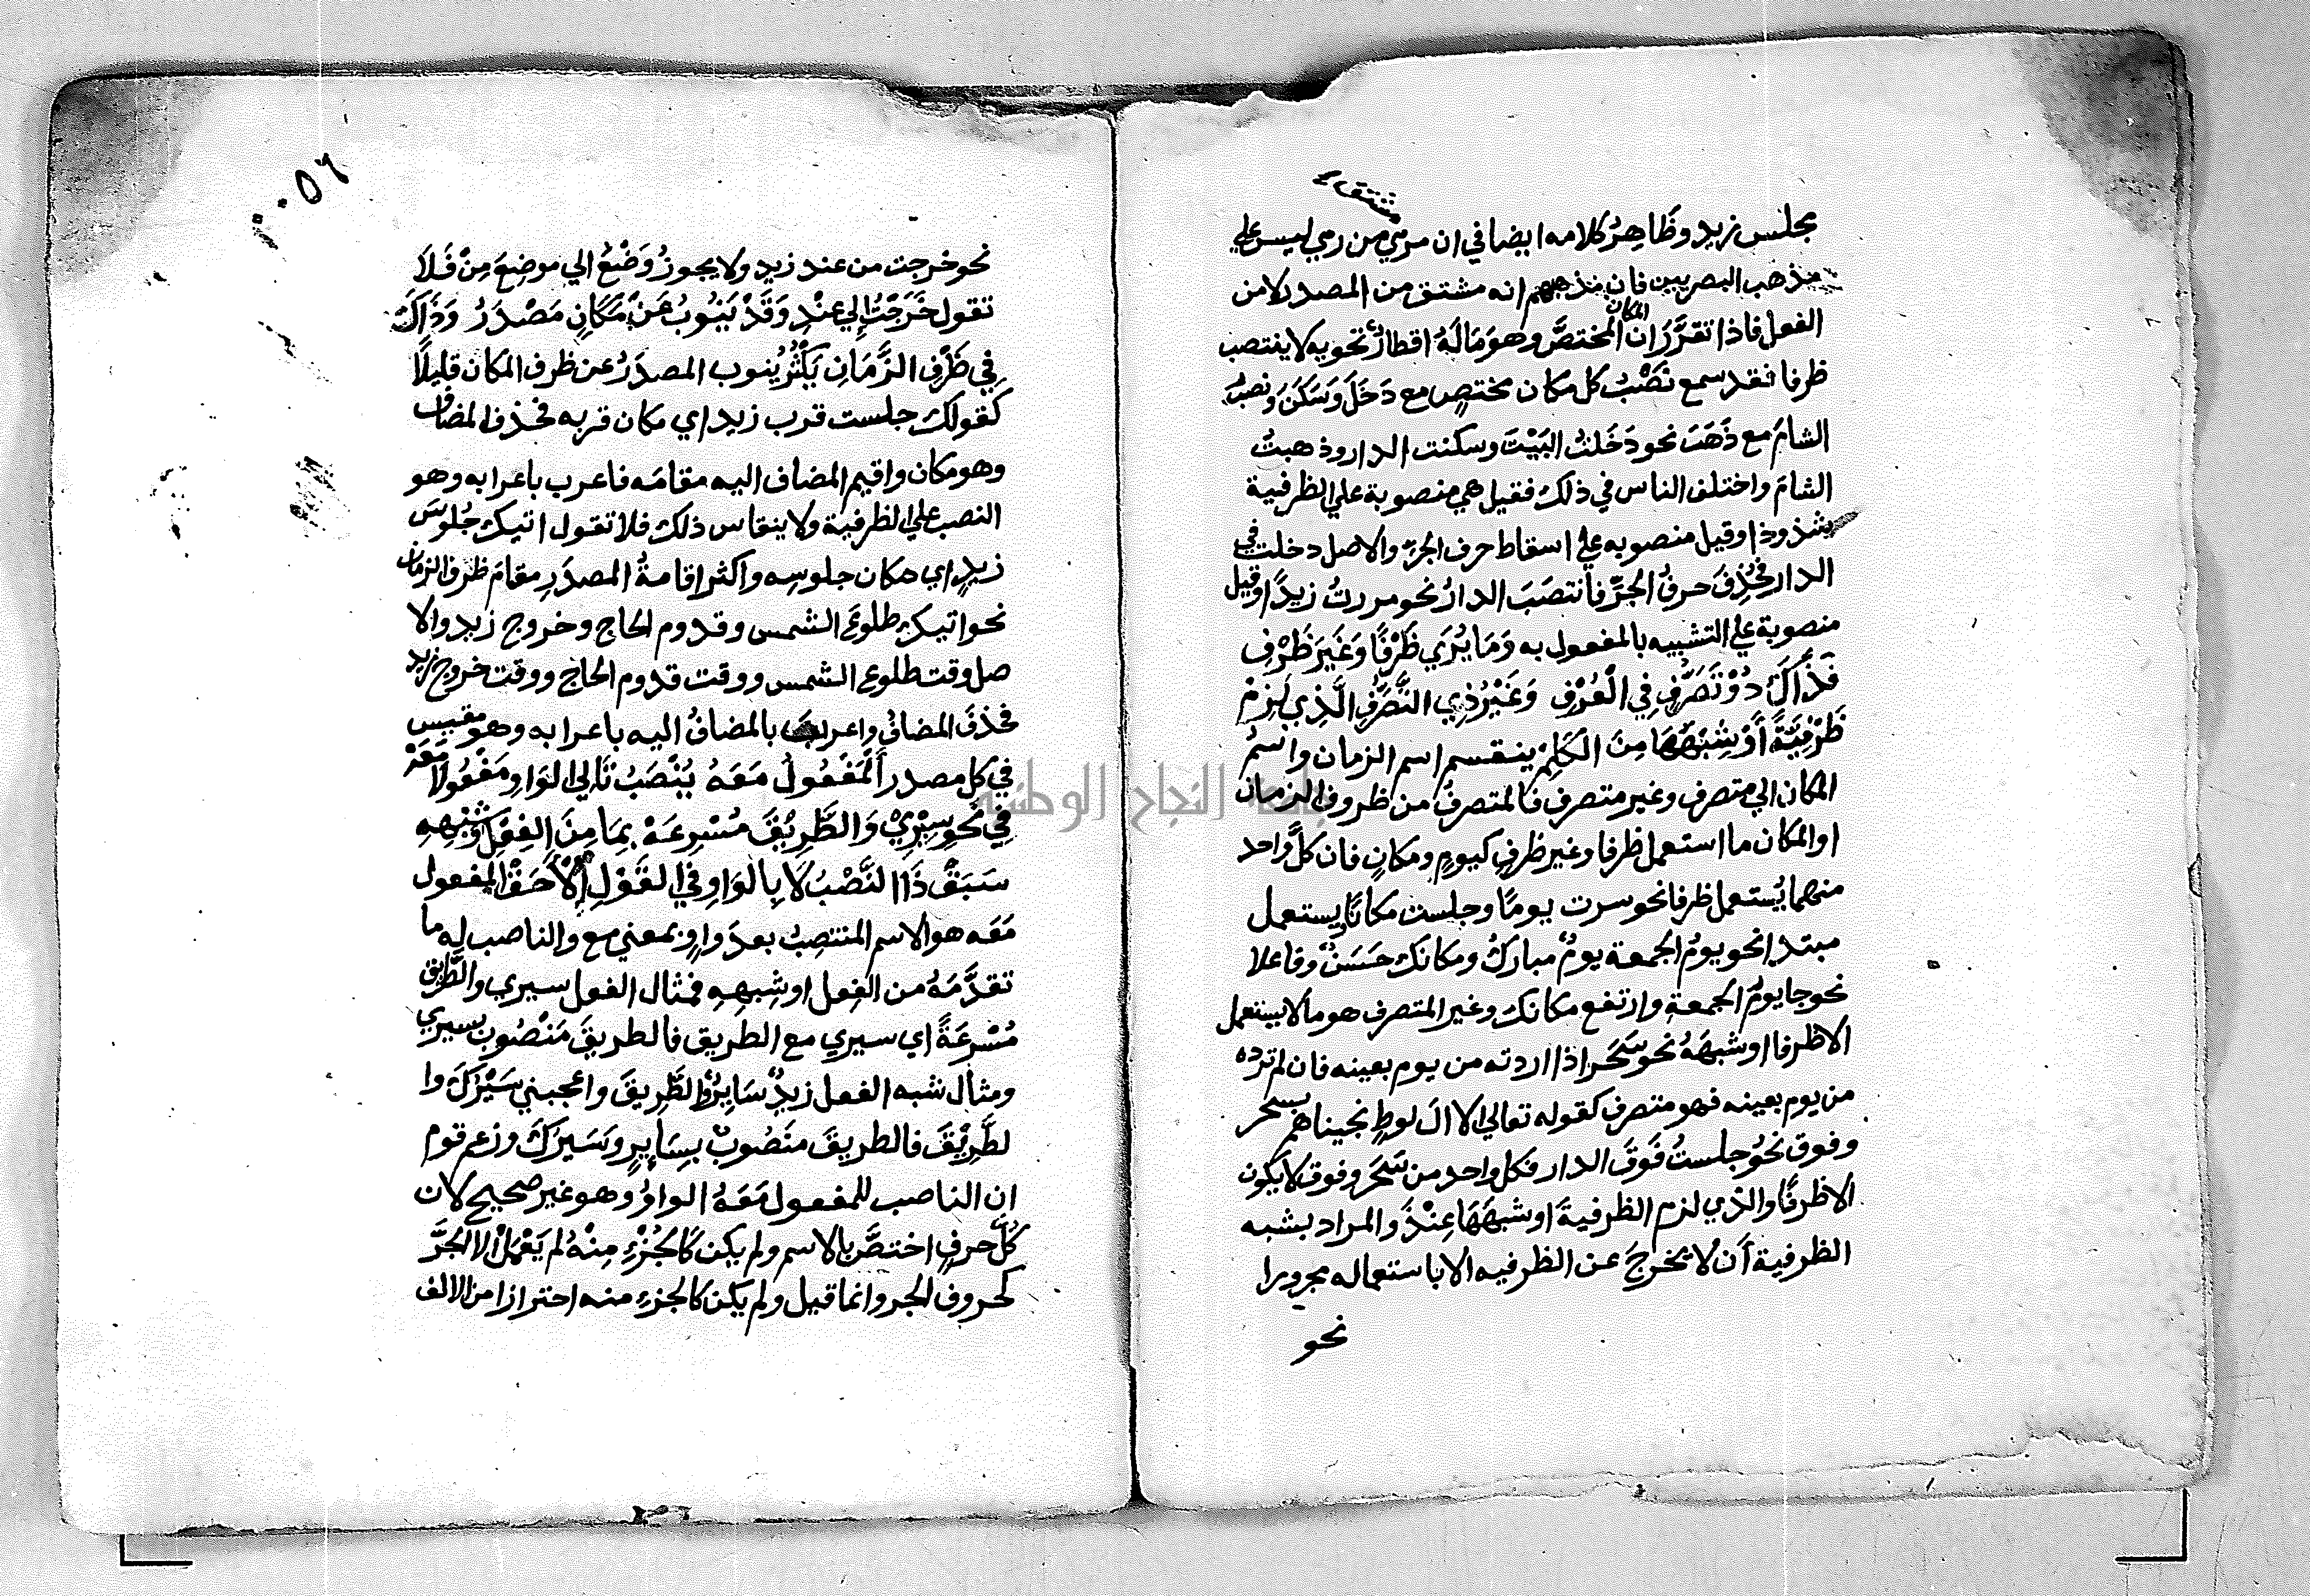 مشتقا
مجلس زيد وظَاهِرُ كلامه ايضا في ان مرمي من رمي ليس علي
مذهب البصريين فان مذهبهم انه مشتق من المصدر لا من
الفعل فاذا تقرَّرَ ان المكان المختصَّ وهو مَا لَهُ اقطارٌ تحويه لا ينتصب
ظرفا فقد سمع نَصْبُ كل مكان مختصٍ مع دَخَلَ وَسَكَنَ ونصبُ
الشامَ مع ذَهَبَ نحو دَخَلتُ البَيْتَ وسكنت الدار وذهبتُ
الشامَ واختلف الناس في ذلك فقيل هي منصوبة علي الظرفية
شذوذا وقيل منصوبه علي اسقاط حرف الجر والاصل دخلت في
الدار فحُذِفَ حرفُ الجرِّ فانتصَبَ الدارُ نحو مررتُ زيدًا وقيل
منصوبة علي التشبيه بالمفعول به وَمَا يُرَي ظَرْفًا وَغَيرَ ظَرْفِ
فَذَاكَ ذُوْ تَصَرُّفٍ فِي الْعُرْفِ وَغَيْرُ ذِي التَّصَرُّفِ الَّذِي لَزِمْ
ظَرْفِيَّةً أَوْ شِبْهَهَا مِنَ الْكَلِمْ ينقسم اسم الزمان واسمُ
المكان الي متصرف وغير متصرف فالمتصرفُ من ظروف الزمان
او المكان ما استعمل ظرفا وغير ظرفٍ كيومٍ ومكانٍ فان كلَّ واحد
منهما يُستعمل ظرفا نحو سرت يومًا وجلست مكانًا ويستعمل
مبتدا نحو يومُ الجمعة يومٌ مباركٌ ومكانك حَسَنٌ وفاعلا
نحو جا يومُ الجمعةِ وارتفع مكانك وغير المتصرف هو ما لا يستعمل
الا ظرفا او شبهَهُ نحو سَحَرَ اذا اردته من يوم بعينه فان لم ترده
من يوم بعينه فهو متصرف كقوله تعالي الا الَ لوطٍ نجيناهم بسحر
وفوق نحُو جلستُ فَوقَ الدار فكل واحد من سَحَرَ وفوق لا يكون
الا ظرفًا والذي لزم الظرفيةَ او شبهَهَا عِنْدَ والمراد بشبه
الظرفية أَن لا يخرجَ عن الظرفيه الا باستعماله مجرورا
نحو
نحو خرجت من عند زيد ولا يجوزُ وَضْعُ الي موضِعَ مِنْ فَلَا
تقول خَرَجْتُ إِلي عِنْدِ وَقَدْ يَنُوبُ عَنْ مَكَانٍ مَصْدَرُ وَذَاكَ
فِي ظَرْفِ الزَّمَانِ يَكْثُرُ يُنوب المصدَرُ عن ظرف المكان قليلًا
كقولك جلست قرب زيد اي مكان قربه فحذف المضاف
وهو مكان واقيم المضاف اليه مقامَه فاعرب باعرابه وهو
النصب علي الظرفية ولا ينقاس ذلك فلا تقول اتيك جُلوسَ
زيدٍ اي مكان جلوسِه واكثر اقامةُ المصدَرِ مقامَ ظرف الزمان
نحو اتيك طلوعَ الشمس وقدوم الحاج وخروج زيد والا
صل وقت طلوع الشمس ووقت قدوم الحاج ووقت خروج زيد
فحذفَ المضافُ واعرب بالمضافُ اليه باعرابه وهو مقيس
في كل مصدر أَلْمَفْعُولُ مَعَهُ يُنْصَبُ تَالِي الوَاوِ مَفْعُولًا مَعَهْ
فِي نَحْوِ سِيْرِيْ وَالطَّرِيْقَ مُسْرِعَهْ بِمَا مِنَ الفِعْلِ وَشِبْهِهِ
سَبَقْ ذَا النَّصْبُ لَا بِالْوَاوِ فِي القَوْلِ الأَحَقْ المفعول
مَعَه هو الاسم المنتصِبُ بعدَ واوٍ بمعني مع والناصب له ما
تقدَّمَهُ من الفِعل او شِبهِهِ فمثال الفعل سيري والطَّريقَ
مُسْرِعَةً اي سيري مع الطريق فالطريقَ مَنْصُوبٌ بسيري
ومثال شبه الفعل زيدٌ سَايِرٌ والطَّرِيقَ واعجبني سَيْرُكَ وا
لطَّرِيْقَ فالطريقَ منَصُوبٌ بِسَايِرٍ وسَيرِكَ وزعم قوم
ان الناصب للمفعول مَعَهُ الواوُ وهو غير صحيح لان
كلَّ حرفٍ اختصَّ بالاسم ولم يكن كَالجُزْءِ مِنْهُ لم يَعْمَلْ الا الجَرَّ
كحروف الجر وانما قيل ولم يكن كالجزءِ منه احترازا من الالف
جامعة النجاح الوطنية